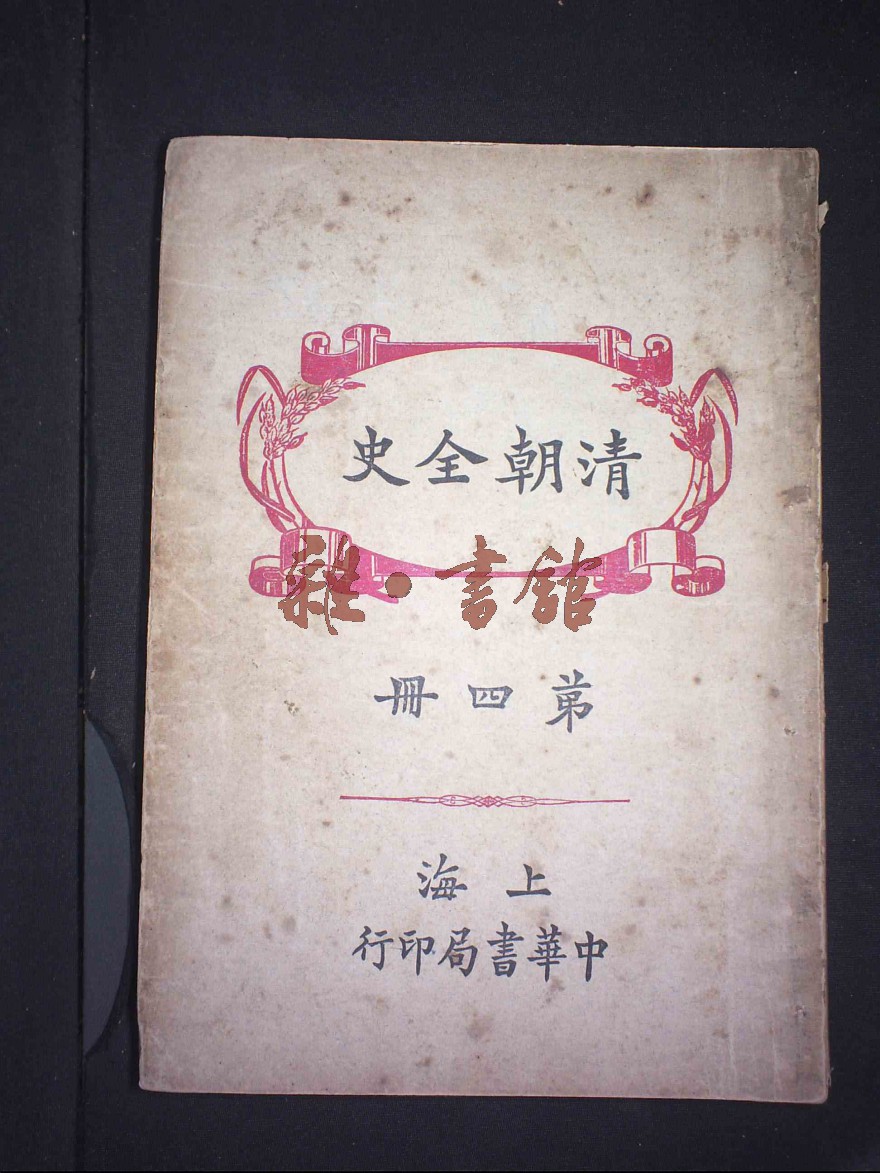 清朝全史
雜·書館
弟四冊
上海
中華書局印行